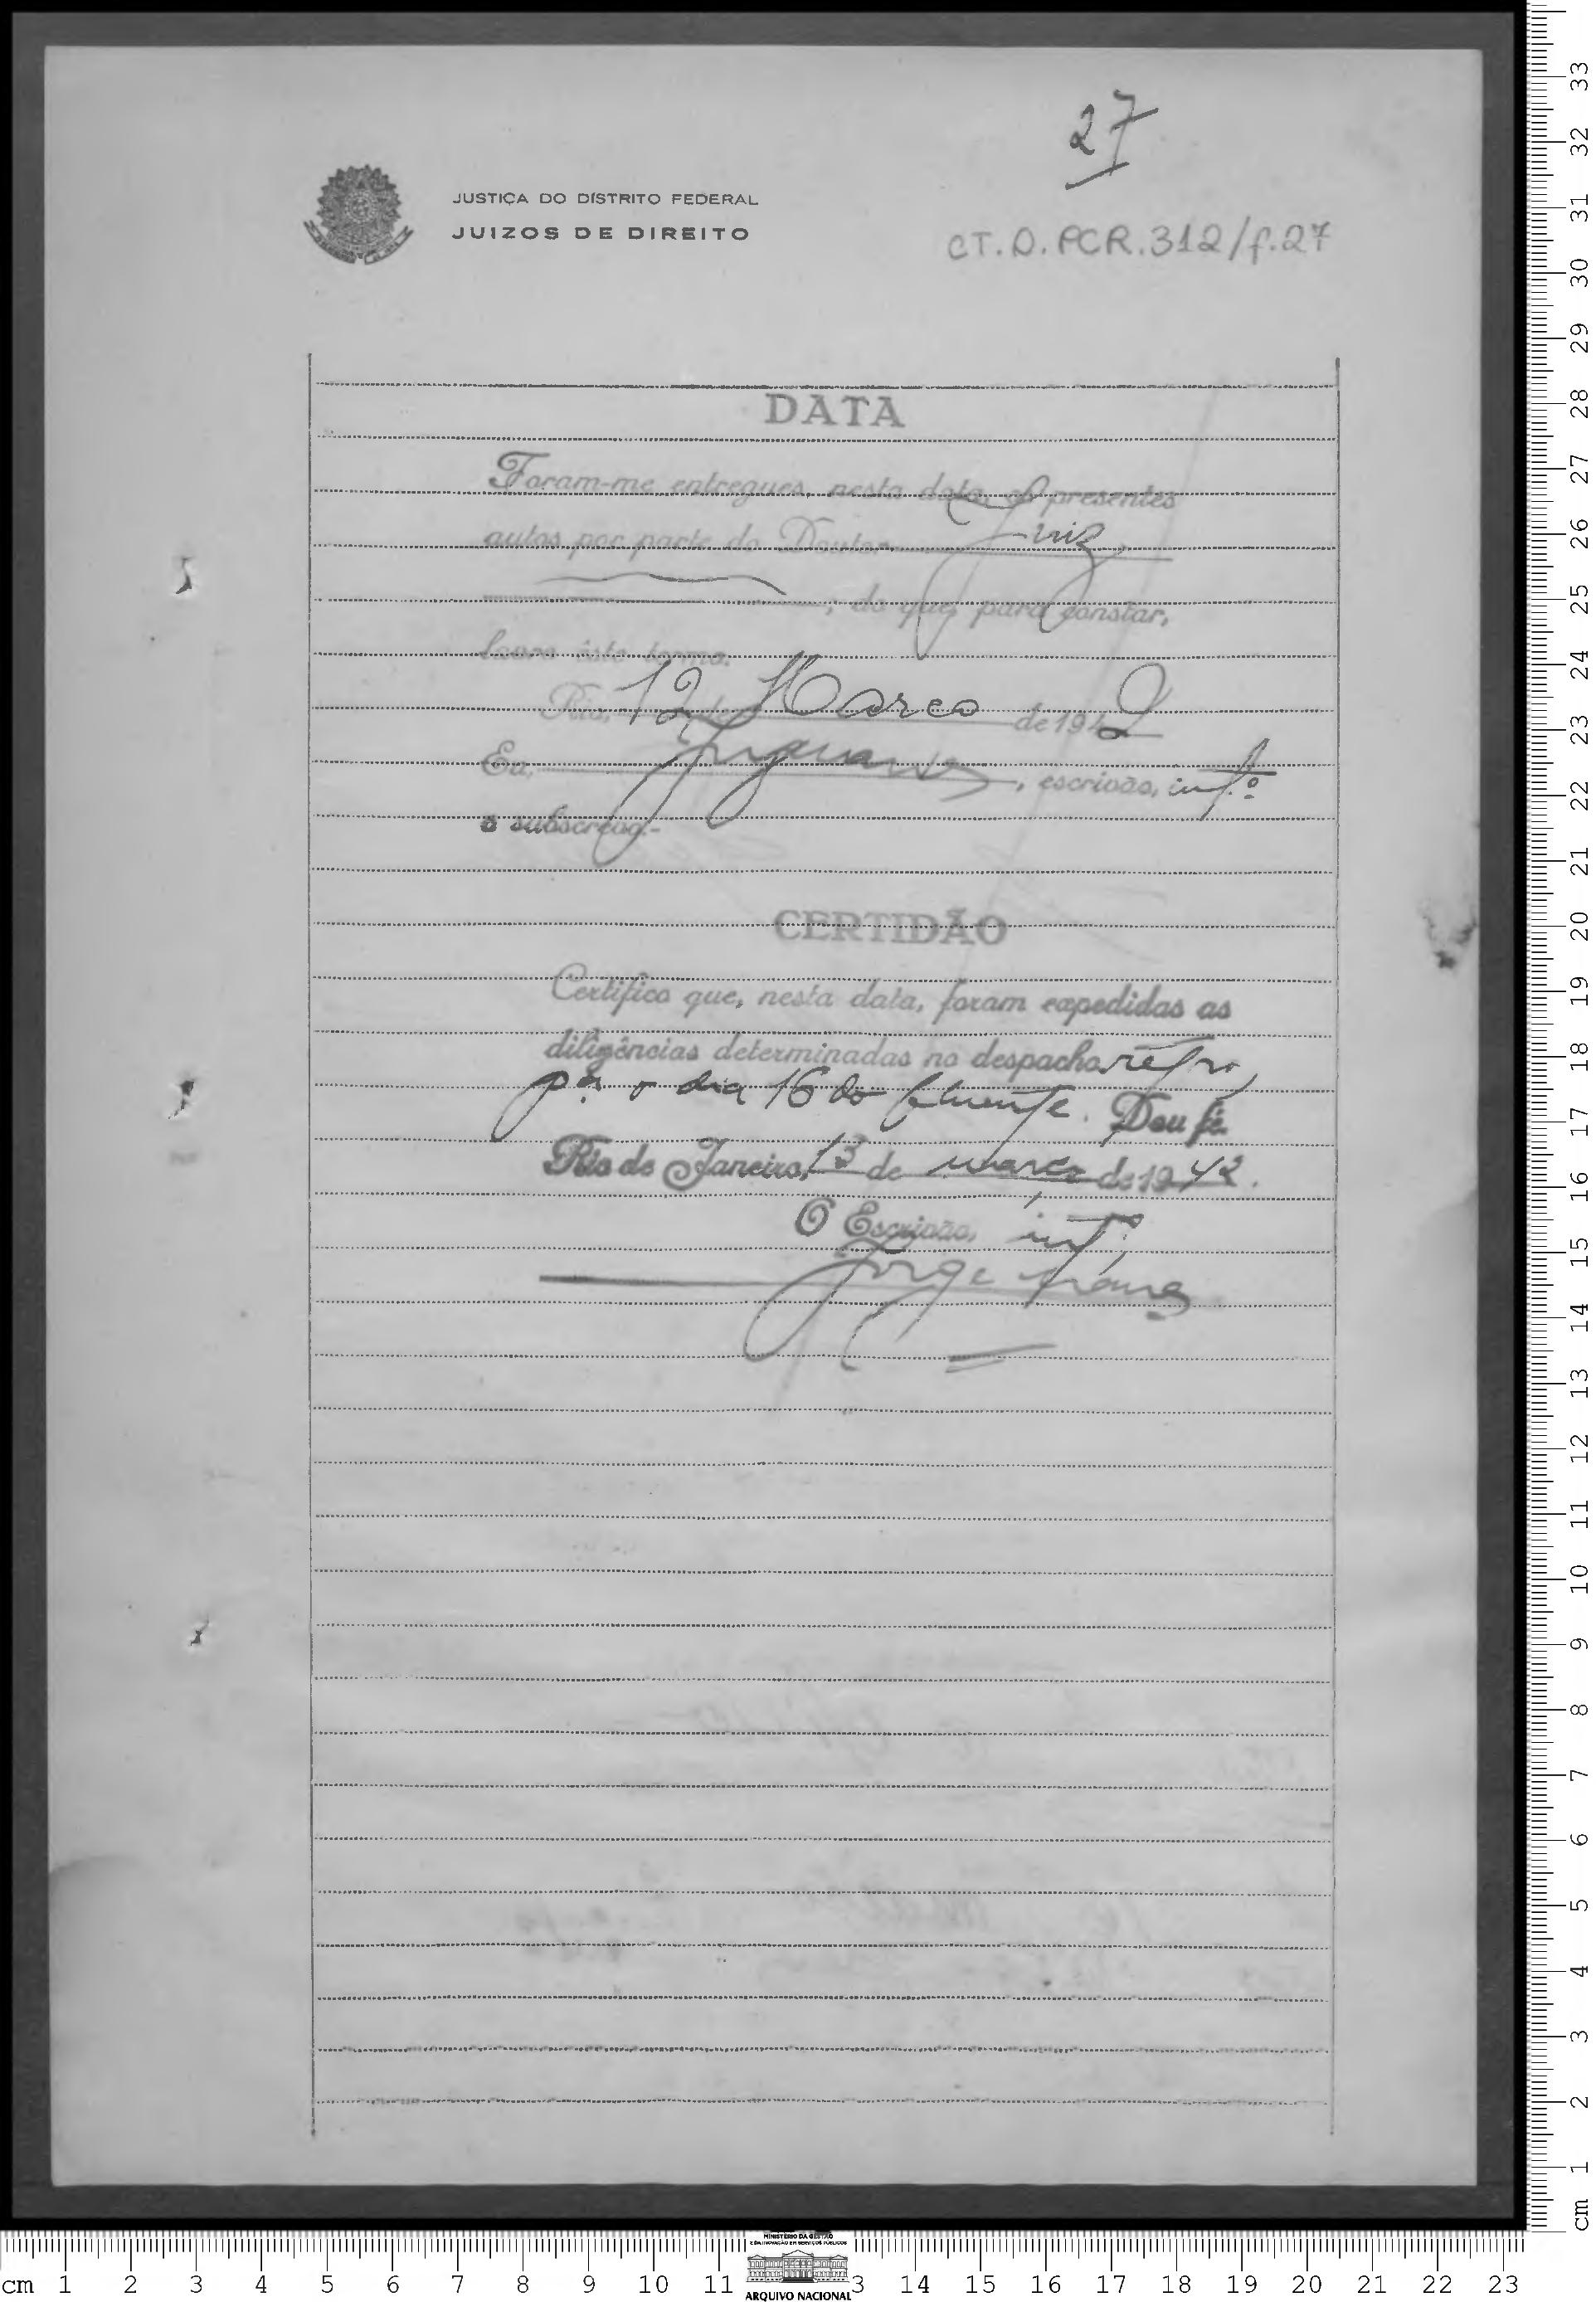 27
JUSTIÇA DO DISTRITO FEDERAL
JUIZOS DE DIREITO
CT.D.PCR.312/f.27
DATA
Foram-me entregues, nesta data, os presentes
autos por parte do Doutor Juiz
, do que, para constar,
lavro êste termo.
Rio, 12 de Março de 1942
Eu, , escrivão, intº
o subscrevo.-
CERTIDÃO
Certifico que, nesta data, foram expedidas as
diligências determinadas no despacho retro,
pª o dia 16 do fluente. Dou fé
Rio de Janeiro, 13 de março de 1942.
O Escrivão, intº,
Jorge
MINISTÉRIO DA GESTÃO
E DA INOVAÇÃO EM SERVIÇOS PÚBLICOS
ARQUIVO NACIONAL
cm 1 2 3 4 5 6 7 8 9 10 11 3 14 15 16 17 18 19 20 21 22 23
33
32
31
30
29
28
27
26
25
24
23
22
21
20
19
18
17
16
15
14
13
12
11
10
9
8
7
6
5
4
3
2
1
cm